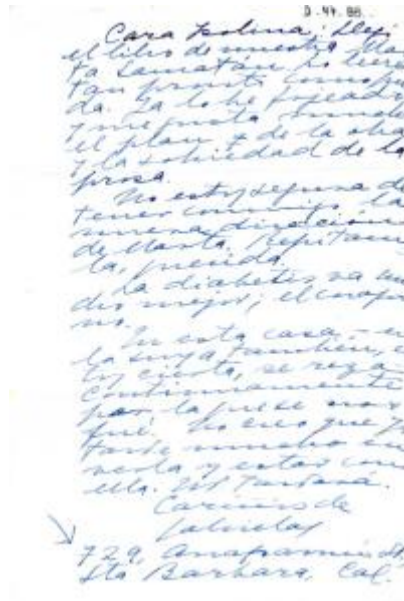 D.44.88.
Cara Isolina: Llegó
el libro de nuestra Mar
ta Samatán. Lo leeré
tan pronto como pue
da. Ya lo he hojeado
y me gusta mucho
el plan + de la obra
y la sobriedad de la
prosa.
No estoy segura de
tener conmigo la
nueva dirección
de Marta. Repítame
la, querida.
La diabetes va me
dio mejor; el corazón
no.
En esta casa - en
la suya, también,
cierta, se reza
continuamente
por la
fué. No creo que
tarde mucho en
verla y estar con
ella.
Cariños de
Gabriela
729, Anapamu St.
Sta Barbara, Cal.